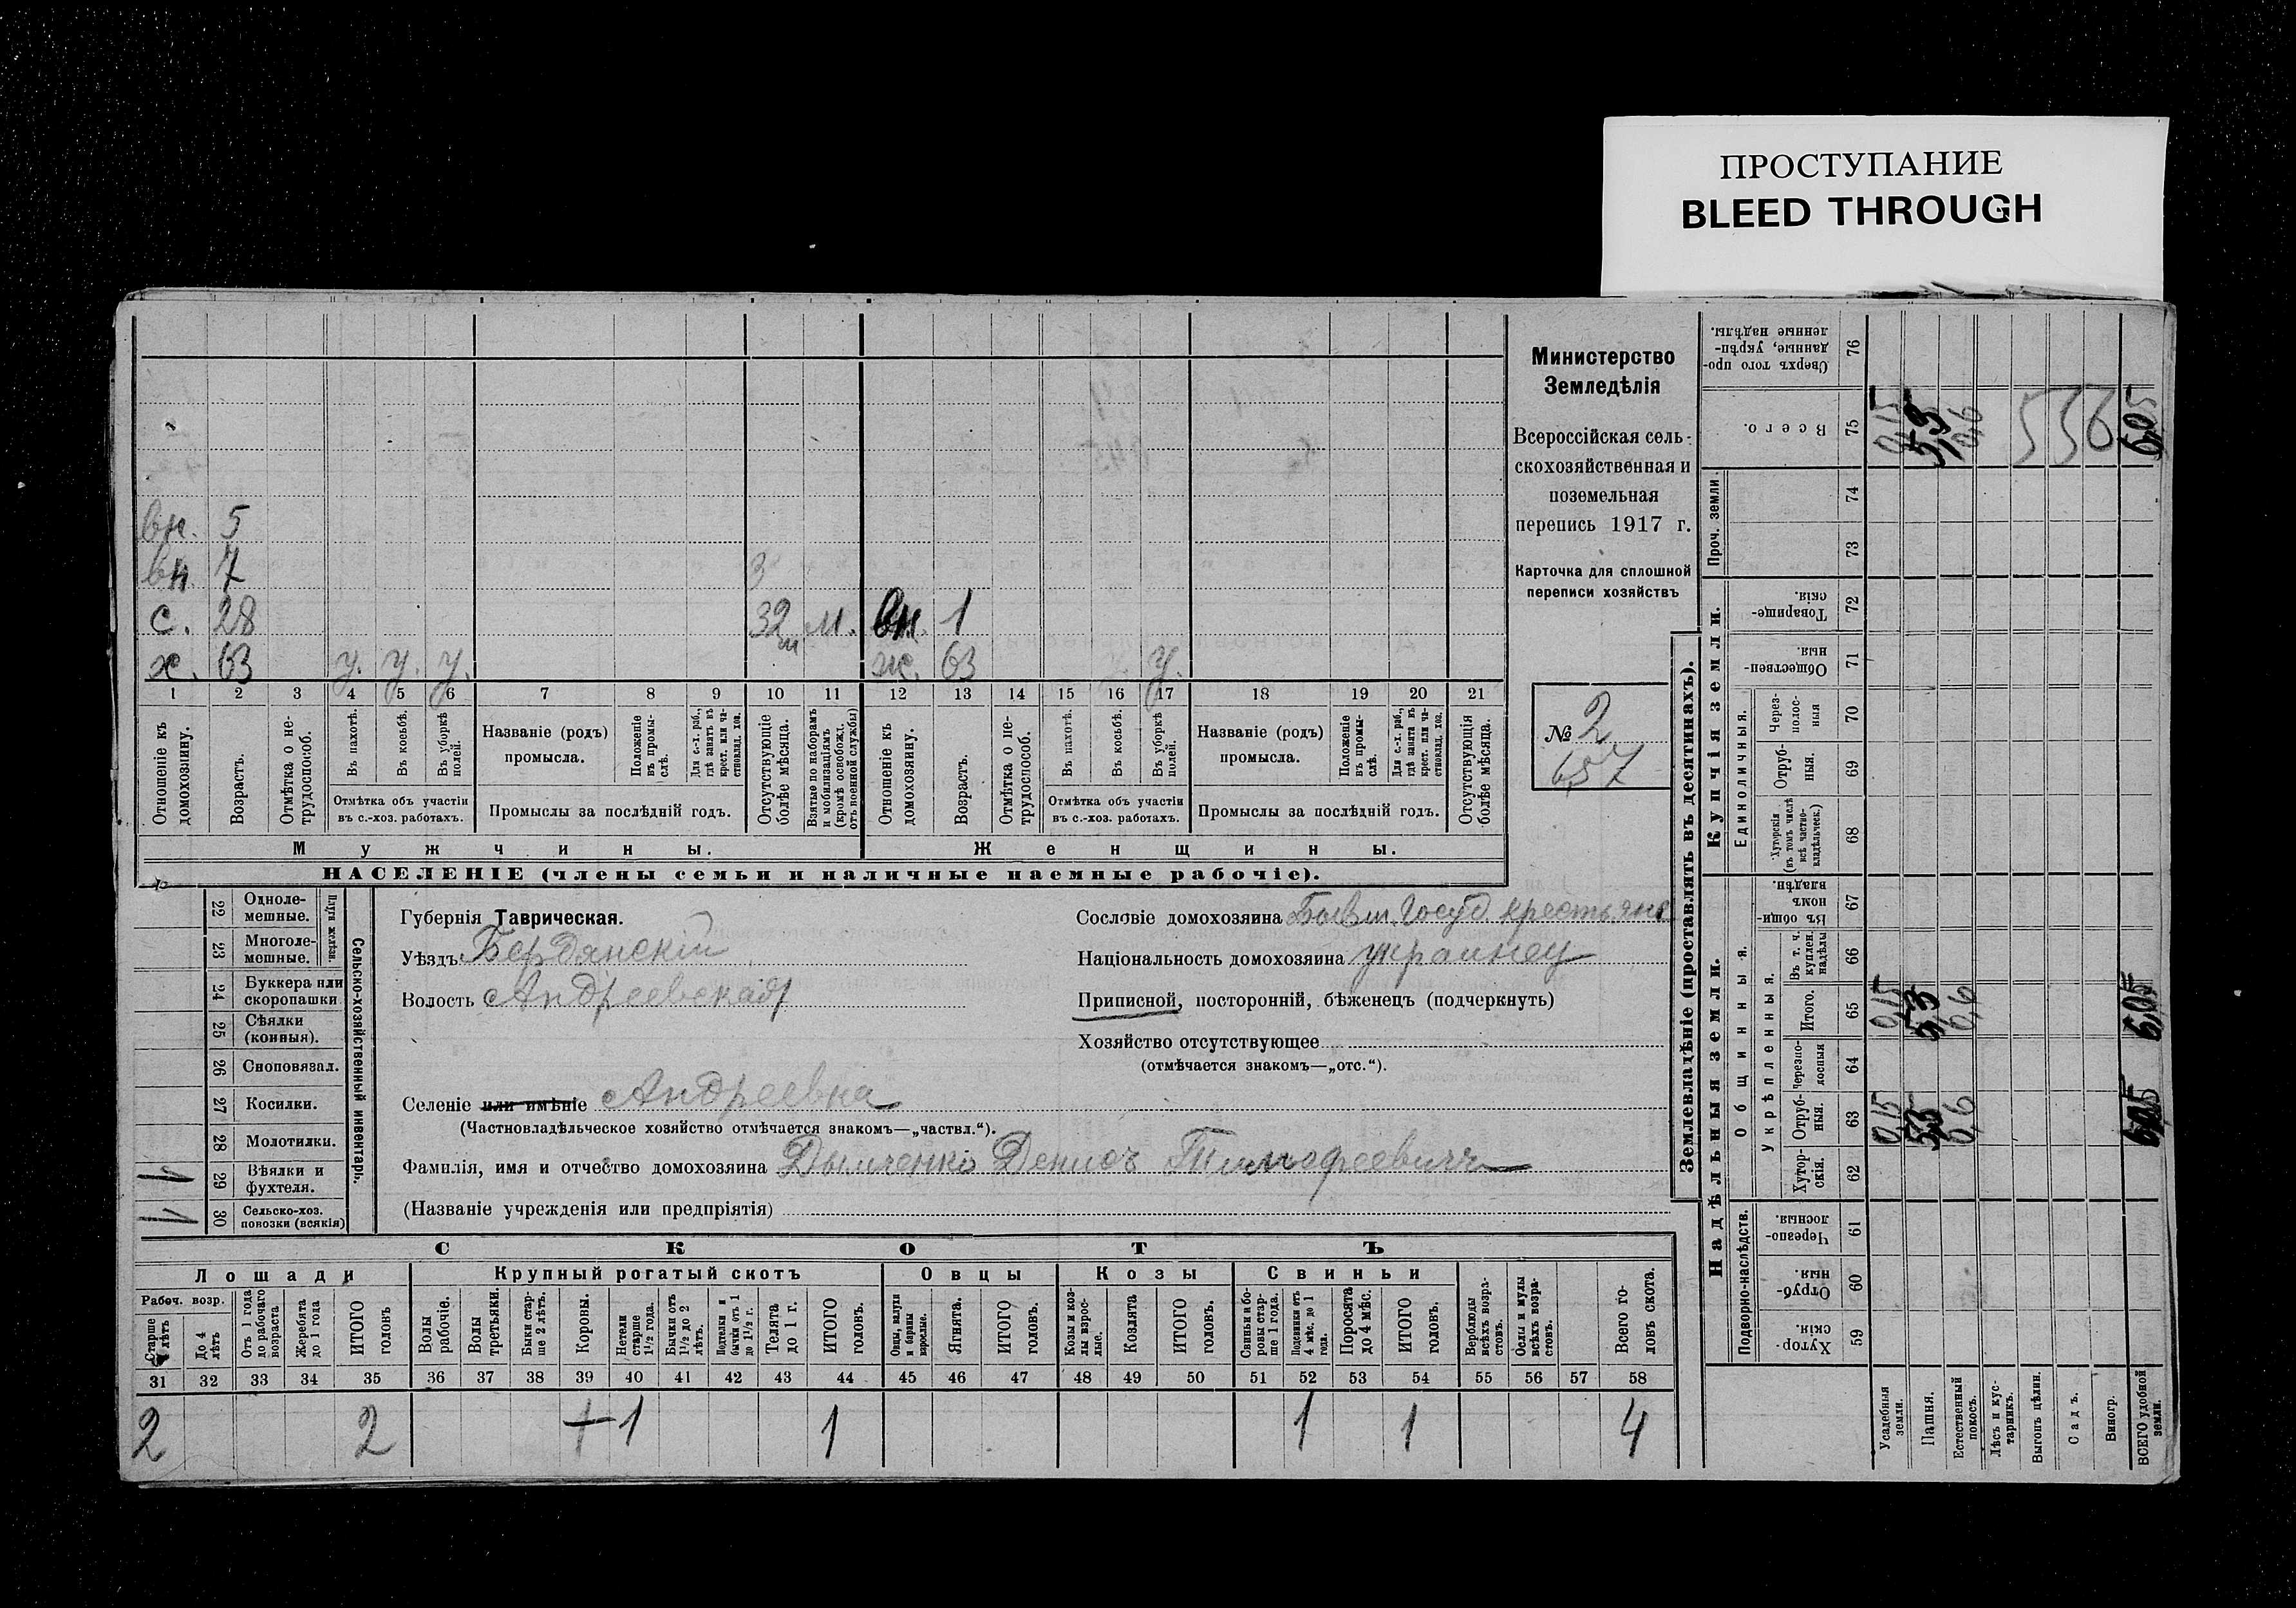 ПРОСТУПАНИЕ
BLEED THROUGH
Министерство
Земледѣлія
Всероссійская сель-
скохозяйственная и
поземельная
перепись 1917 г.
Карточка для сплошной
переписи хозяйствъ
№ 2
657
вн. 5
вн 7 3
с. 28 32 м. вн. 1
х. 63 у. у. у. ж. 63 у.
1 2 3 4 5 6 7 8 9 10 11 12 13 14 15 16 17 18 19 20 21
Отношеніе къ домохозяину.
Возрастъ.
Отмѣтка о не-трудоспособ.
Въ пахотѣ.
Въ косьбѣ.
Въ уборкѣ полей.
Отмѣтка объ участіи
въ с.-хоз. работахъ.
Названіе (родъ)
промысла.
Положеніе въ промы-слѣ.
Для с.-х. раб., гдѣ занятъ въ крест. или ча-стновлад. хоз.
Промыслы за послѣдній годъ.
Отсутствующіе болѣе мѣсяца.
Взятые по наборамъ и мобилизаціямъ (кромѣ освобожд. отъ военной службы)
Отношеніе къ домохозяину.
Возрастъ.
Отмѣтка о не-трудоспособ.
Въ пахотѣ.
Въ косьбѣ.
Въ уборкѣ полей.
Отмѣтка объ участіи
въ с.-хоз. работахъ.
Названіе (родъ)
промысла.
Положеніе въ промы-слѣ.
Для с.-х. раб., гдѣ занята въ крест. или ча-стновлад. хоз.
Промыслы за послѣдній годъ.
Отсутствующія болѣе мѣсяца.
Мужчины. Женщины.
НАСЕЛЕНІЕ (члены семьи и наличные наемные рабочіе).
22 Одноле-мешные.
23 Многоле-мешные.
Плуги желѣзн.
24 Буккера или скоропашки
25 Сѣялки (конныя).
26 Сноповязал.
27 Косилки.
28 Молотилки.
29 Вѣялки и фухтеля.
30 Сельско-хоз. повозки (всякія)
Сельско-хозяйственный инвентарь.
Губернія Таврическая.
Уѣздъ Бердянскій
Волость Андреевская
Сословіе домохозяина Бывш. Госуд. крестьянє
Національность домохозяина украинец
Приписной, посторонній, бѣженецъ (подчеркнуть)
Хозяйство отсутствующее
(отмѣчается знакомъ—„отс.“).
Селеніе или имѣніе Андреевка
(Частновладѣльческое хозяйство отмѣчается знакомъ—„частвл.“).
Фамилія, имя и отчество домохозяина Дымченко Денисъ Тимофеевичъ
(Названіе учрежденія или предпріятія)
СКОТЪ
Лошади Крупный рогатый скотъ Овцы Козы Свиньи
Рабоч. возр.
Старше 4 лѣтъ
До 4 лѣтъ
Отъ 1 года до рабочаго возраста
Жеребята до 1 года
ИТОГО головъ
Волы рабочіе.
Волы третьяки.
Быки стар-ше 2 лѣтъ.
Коровы.
Нетели старше 1½ года.
Бычки отъ 1½ до 2 лѣтъ.
Подтелки и бычки отъ 1 до 1½ г.
Телята до 1 г.
ИТОГО головъ.
Овцы, валухи и бараны взрослые.
Ягнята.
ИТОГО головъ.
Козы и коз-лы взрос-лые.
Козлята
ИТОГО головъ.
Свиньи и бо-ровы стар-ше 1 года.
Подсвинки отъ 4 мѣс. до 1 года.
Поросята до 4 мѣс.
ИТОГО головъ.
Верблюды всѣхъ возра-стовъ.
Ослы и мулы всѣхъ возра-стовъ.
Всего го-ловъ скота.
31 32 33 34 35 36 37 38 39 40 41 42 43 44 45 46 47 48 49 50 51 52 53 54 55 56 57 58
2 2 1 1 1 1 4
Землевладѣніе (проставлять въ десятинахъ).
Надѣльныя земли. Купчія земли.
Подворно-наслѣдств.
Общинныя.
Укрѣпленныя.
Единоличныя.
Проч. земли.
59 Хутор-скія.
60 Отруб-ныя.
61 Черезпо-лосныя
62 Хутор-скія.
63 Отруб-ныя. 0,15 5,3 0,6 6,05
64 Черезпо-лосныя
65 Итого. 0,15 5,3 0,6 6,05
66 Въ т. ч. куплен. надѣлы
67 Въ общи-номъ владѣн.
68 Хуторскія (въ томъ числѣ всѣ частно-владѣльческ.)
69 Отруб-ныя.
70 Через-полос-ныя
71 Обществен-ныя.
72 Товарище-скія.
73
74
75 Всего. 0,15 5,3 0,6 536 6,05
76 Сверхъ того про-данные, укрѣп-ленные надѣлы.
Усадебная земля.
Пашня.
Естественный покосъ.
Лѣсъ и кус-тарникъ.
Выгонъ цѣлин.
Садъ.
Виногр.
ВСЕГО удобной земли.